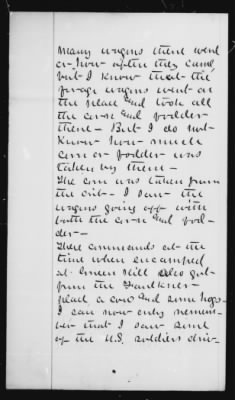 many wagons there went
or how often they came
but I know that the
forage wagons went on
the place and took all
the corn and fodder
there - But I do not
know how much
corn or fodder was
taken by them -
The corn was taken from
the crib - I saw the
wagons going off with
both the corn and fod-
der -
These commands at the
time when encamped
at Green Hill also got
from the Faulkner
place a cow and some hogs -
I can now only remem-
ber that I saw some
of the U.S. soldiers driv-